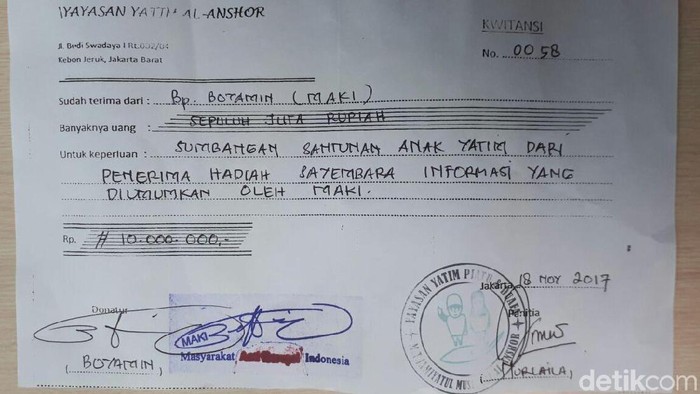 YAYASAN YATIM AL-ANSHOR
KWITANSI
Jl. Budi Swadaya I Rt.002/04
Kebon Jeruk, Jakarta Barat
No. 0058
Sudah terima dari : Bp. BOYAMIN (MAKI)
Banyaknya uang : SEPULUH JUTA RUPIAH
Untuk keperluan : SUMBANGAN SANTUNAN ANAK YATIM DARI
PENERIMA HADIAH SAYEMBARA INFORMASI YANG
DIUMUMKAN OLEH MAKI.
Rp. # 10.000.000,-
Jakarta, 18 NOV 2017
Donatur
Panitia
MAKI
Masyarakat Anti Korupsi Indonesia
YAYASAN YATIM
AL-ANSHOR
(BOYAMIN)
(NURLAILA)
detikcom